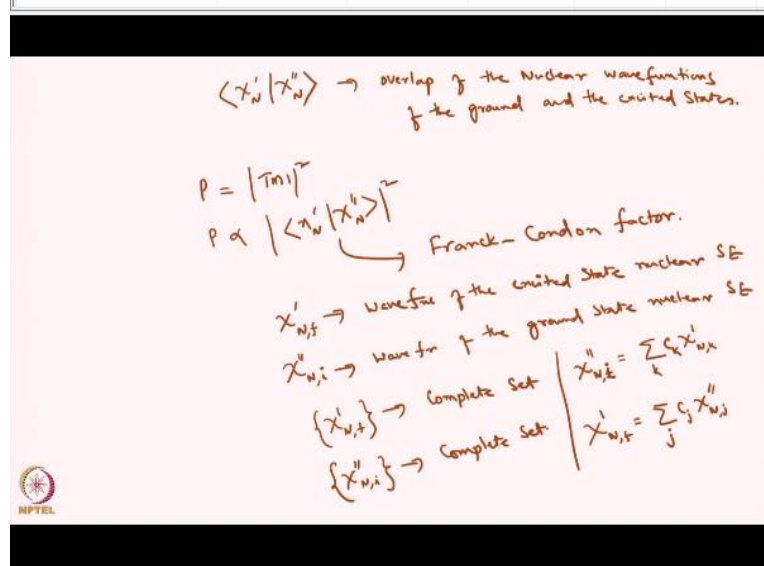 ⟨χ'_N|χ''_N⟩ → overlap of the Nuclear wavefuntions
of the ground and the excited States.
P = |TM|²
P ∝ |⟨χ'_N|χ''_N⟩|²
→ Franck-Condon factor.
χ'_N,f → wavefn of the excited State nuclear SE
χ''_N,i → wavefn of the ground state nuclear SE
{χ'_N,f} → Complete set | χ''_N,i = Σ_k C_k χ'_N,k
{χ''_N,i} → Complete set. | χ'_N,f = Σ_j C_j χ''_N,j
NPTEL